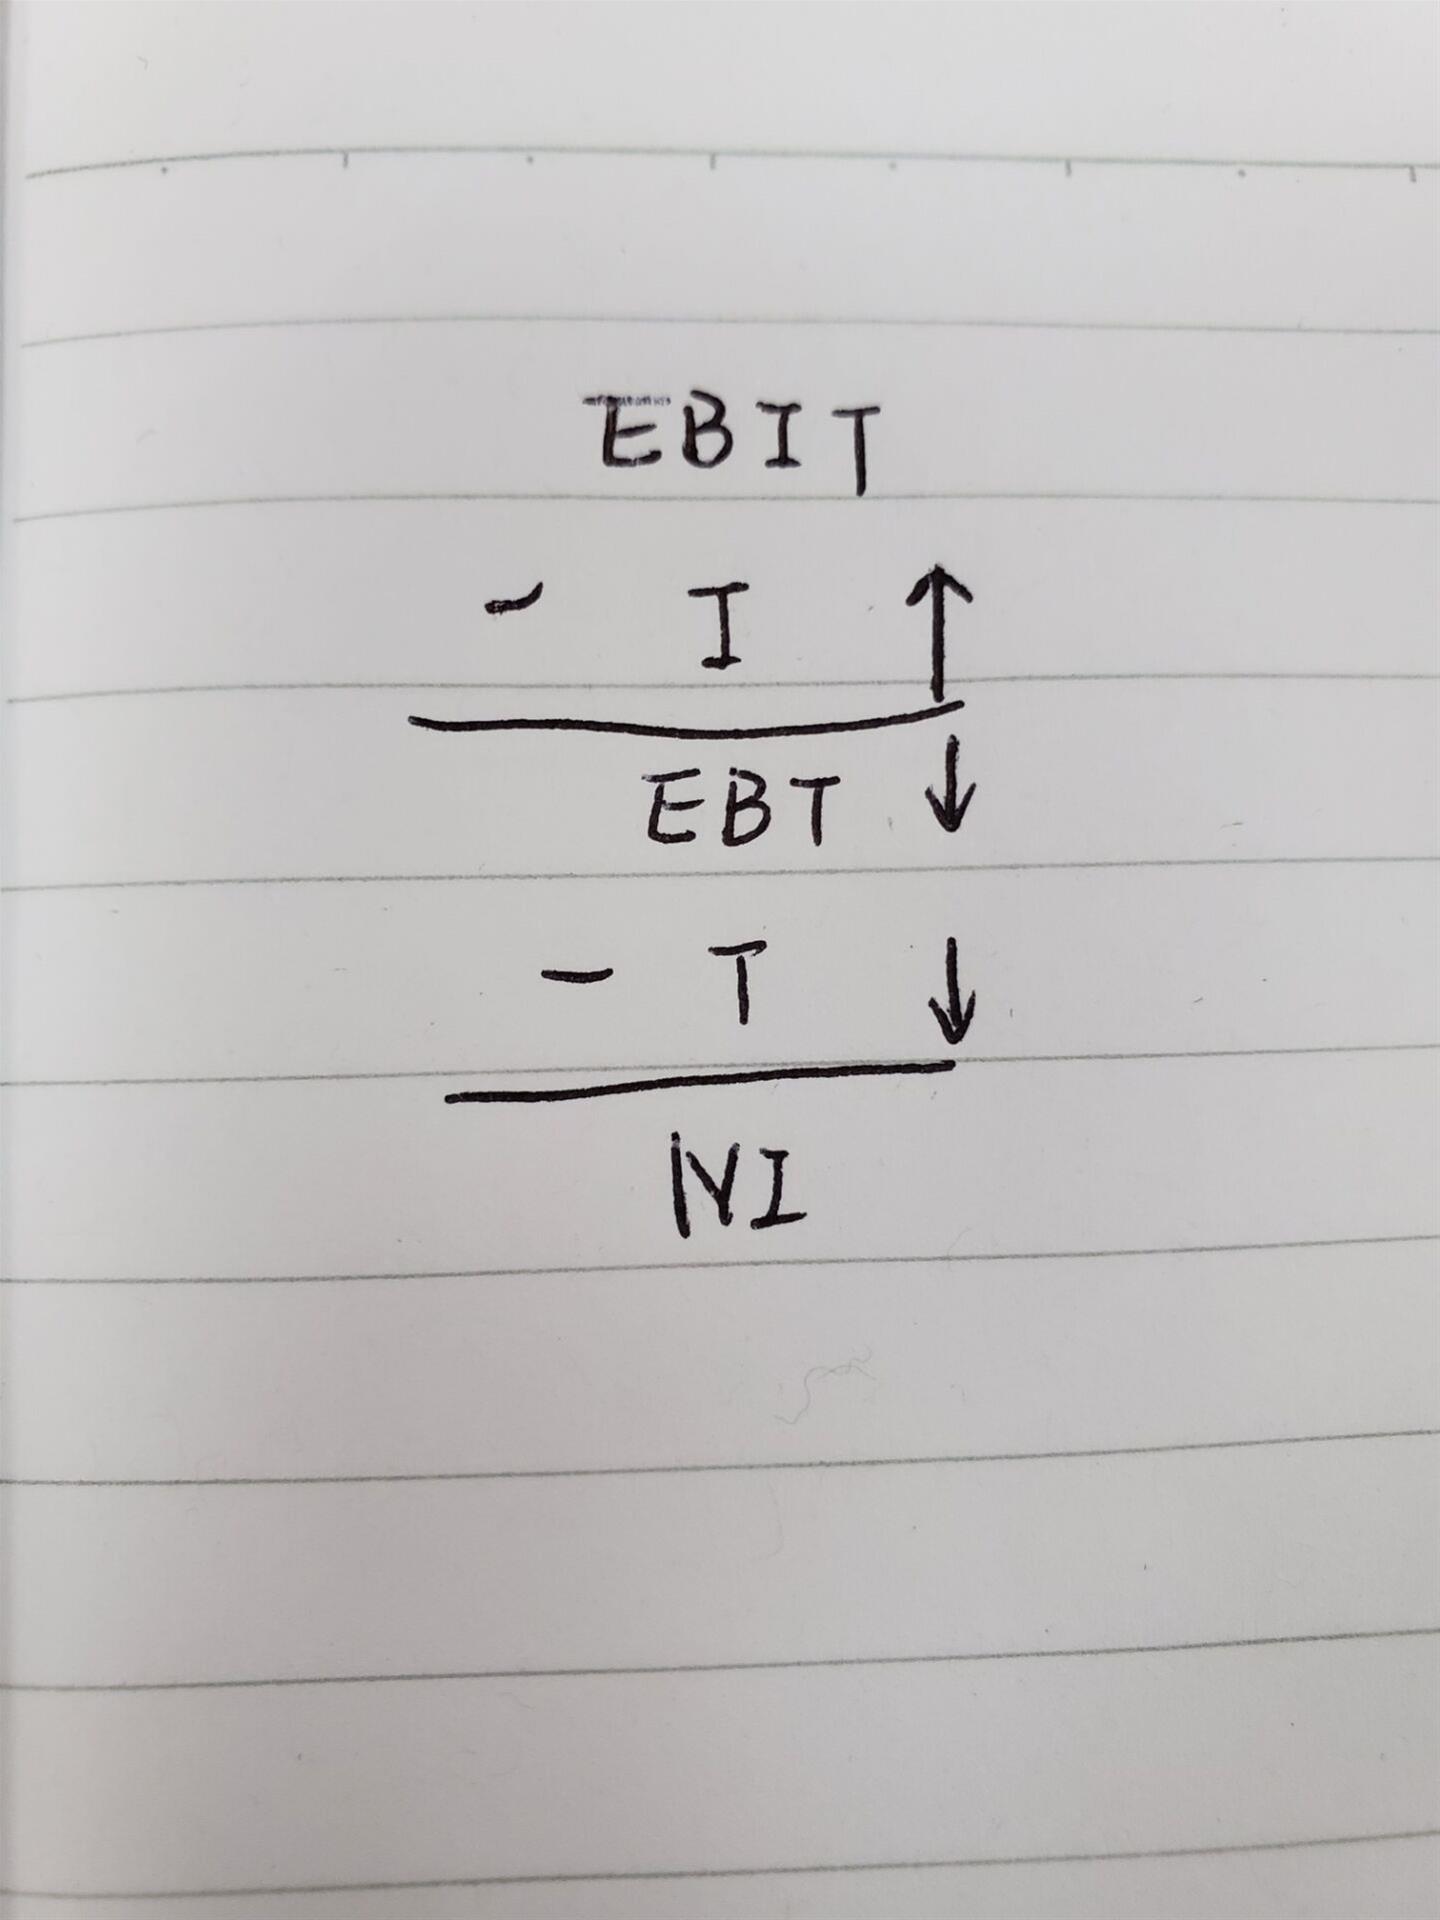 EBIT
- I ↑
EBT ↓
- T ↓
NI